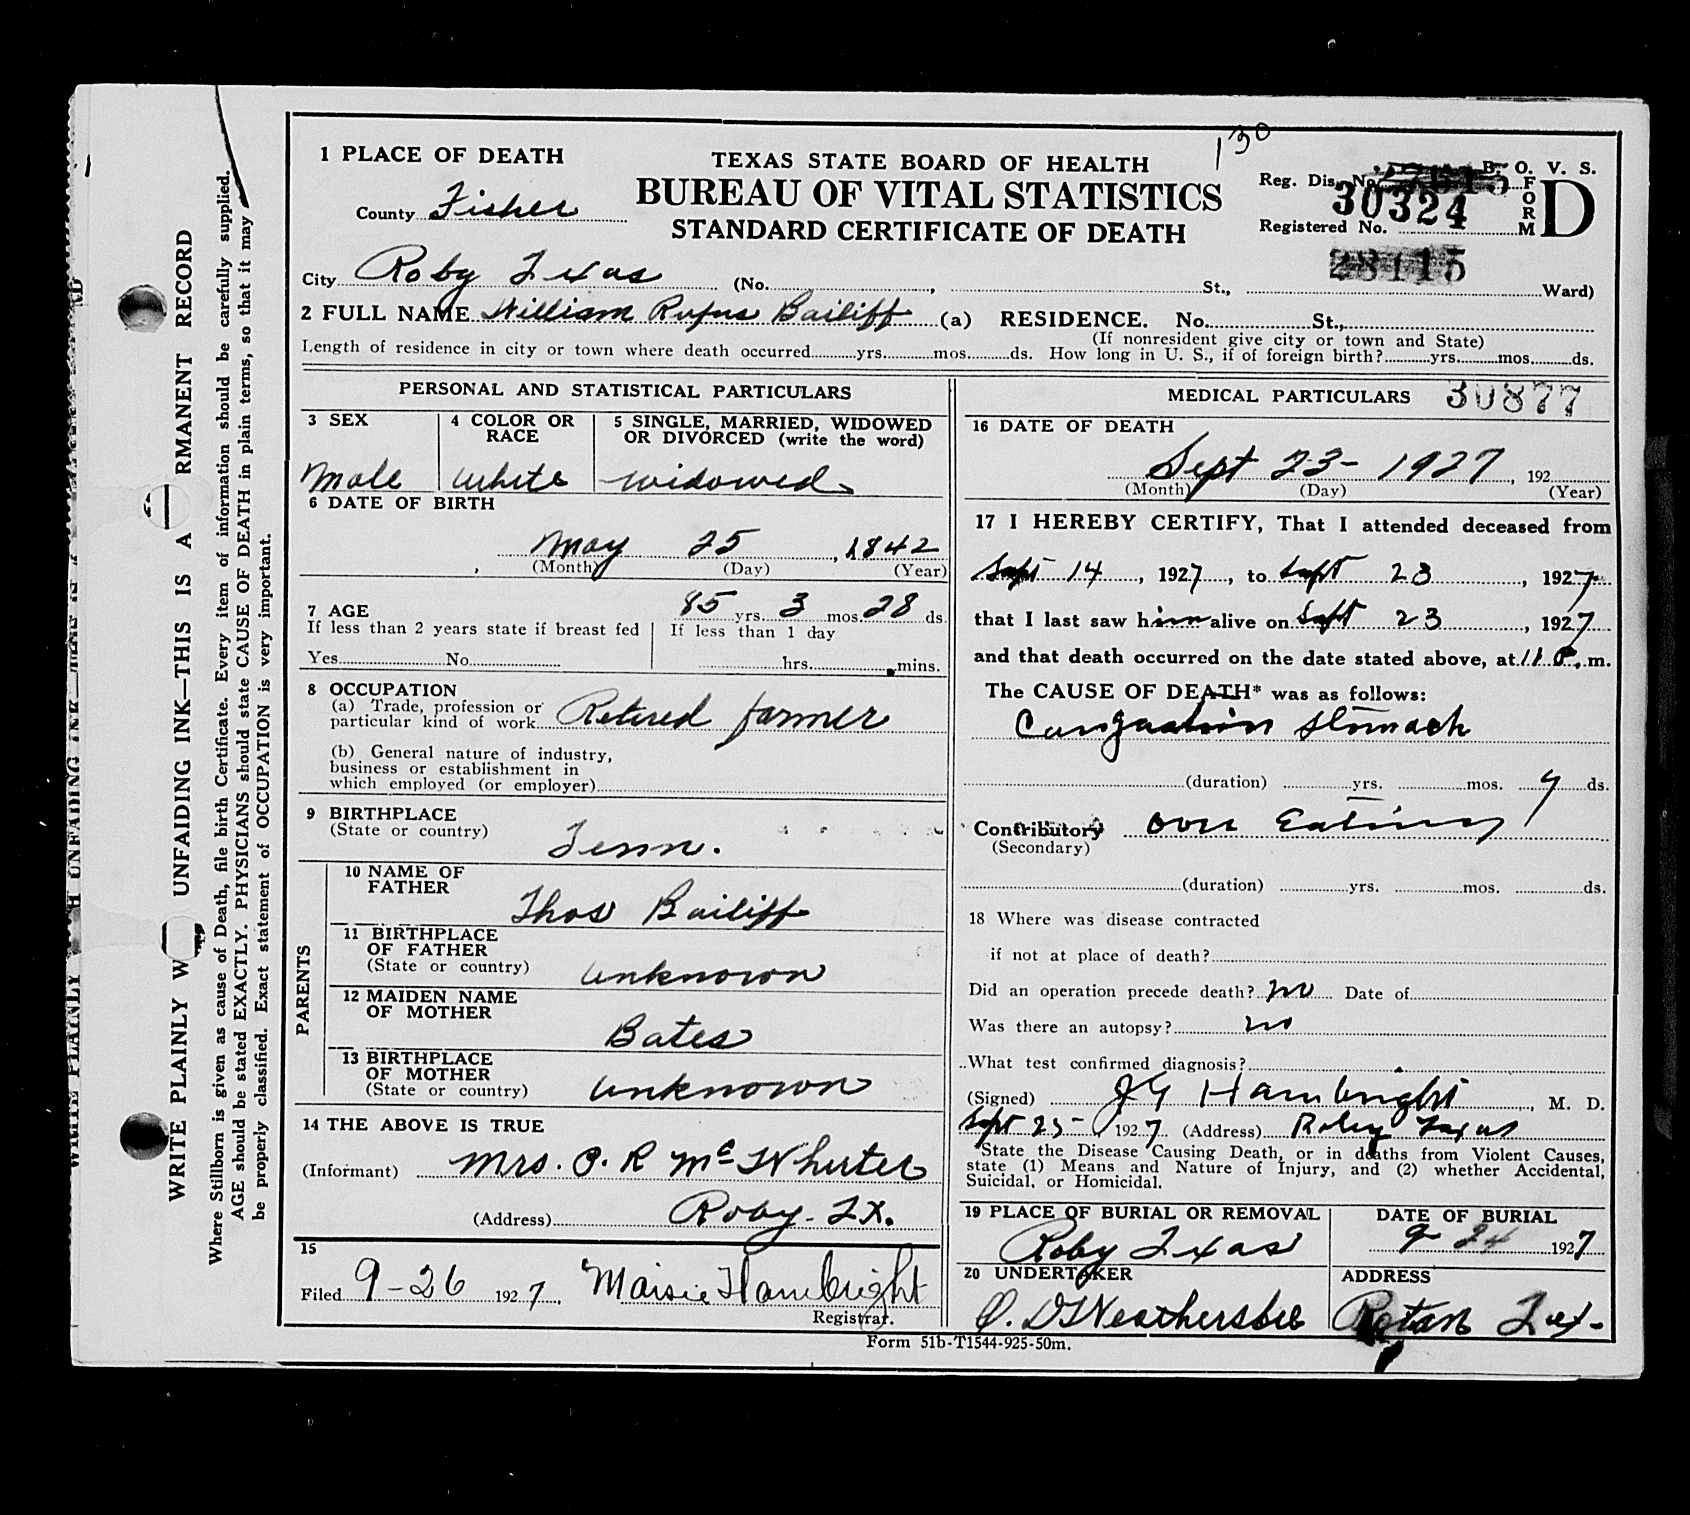 130
1 PLACE OF DEATH
TEXAS STATE BOARD OF HEALTH
B. O. V. S.
County Fisher
BUREAU OF VITAL STATISTICS
Reg. Dis. No.
30324
FORM D
STANDARD CERTIFICATE OF DEATH
Registered No.
City Roby Texas (No. , St., Ward)
2 FULL NAME William Rufus Bailiff (a) RESIDENCE. No. St.,
(If nonresident give city or town and State)
Length of residence in city or town where death occurred yrs. mos. ds. How long in U. S., if of foreign birth? yrs. mos. ds.
PERSONAL AND STATISTICAL PARTICULARS
3 SEX
4 COLOR OR RACE
5 SINGLE, MARRIED, WIDOWED
OR DIVORCED (write the word)
Male white widowed
6 DATE OF BIRTH
May 25, 1842
(Month) (Day) (Year)
7 AGE 85 yrs. 3 mos. 28 ds.
If less than 2 years state if breast fed
If less than 1 day
Yes No
hrs. mins.
8 OCCUPATION
(a) Trade, profession or
particular kind of work Retired farmer
(b) General nature of industry,
business or establishment in
which employed (or employer)
9 BIRTHPLACE
(State or country) Tenn.
PARENTS
10 NAME OF
FATHER
Thos Bailiff
11 BIRTHPLACE
OF FATHER
(State or country) unknown
12 MAIDEN NAME
OF MOTHER
Bates
13 BIRTHPLACE
OF MOTHER
(State or country) unknown
14 THE ABOVE IS TRUE
(Informant) Mrs. O. R McWhirter
(Address) Roby. Tx.
15
Filed 9-26 1927, Maisie Hambright
Registrar.
MEDICAL PARTICULARS 30877
16 DATE OF DEATH
Sept 23- 1927, 192
(Month) (Day) (Year)
17 I HEREBY CERTIFY, That I attended deceased from
Sept 14, 1927, to Sept 23, 1927
that I last saw him alive on Sept 23, 1927
and that death occurred on the date stated above, at 11 P. m.
The CAUSE OF DEATH* was as follows:
Congestion Stomach
(duration) yrs. mos. 9 ds.
Contributory Over Eating
(Secondary)
(duration) yrs. mos. ds.
18 Where was disease contracted
if not at place of death?
Did an operation precede death? no Date of
Was there an autopsy? no
What test confirmed diagnosis?
(Signed) J G Hambright, M. D.
Sept 25- 1927 (Address) Roby Texas
*State the Disease Causing Death, or in deaths from Violent Causes,
state (1) Means and Nature of Injury, and (2) whether Accidental,
Suicidal, or Homicidal.
19 PLACE OF BURIAL OR REMOVAL
DATE OF BURIAL
Roby Texas
9-24 1927
20 UNDERTAKER
ADDRESS
O. D Weathersbee
Rotan Tex-
Form 51b-T1544-925-50m.
WRITE PLAINLY W UNFAIDING INK—THIS IS A RMANENT RECORD
Where Stillborn is given as cause of Death, file birth Certificate. Every item of information should be carefully supplied.
AGE should be stated EXACTLY. PHYSICIANS should state CAUSE OF DEATH in plain terms, so that it may
be properly classified. Exact statement of OCCUPATION is very important.